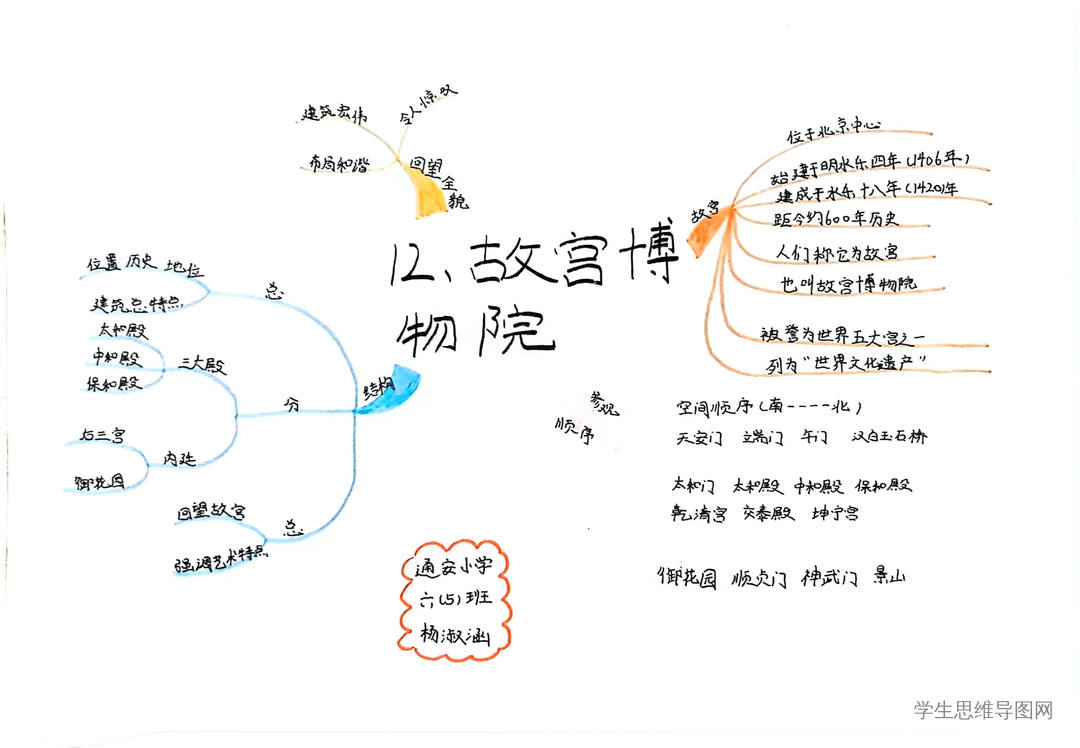 12、故宫博
物院
回望全貌
建筑宏伟
令人惊叹
布局和谐
故宫
位于北京中心
始建于明永乐四年(1406年)
建成于永乐十八年(1420)年
距今约600年历史
人们称它为故宫
也叫故宫博物院
被誉为世界五大宫之一
列为“世界文化遗产”
结构
总
位置 历史 地位
建筑总特点
分
三大殿
太和殿
中和殿
保和殿
内廷
后三宫
御花园
总
回望故宫
强调艺术特点
参观
顺序
空间顺序(南----北)
天安门 端门 午门 汉白玉石桥
太和门 太和殿 中和殿 保和殿
乾清宫 交泰殿 坤宁宫
御花园 顺贞门 神武门 景山
通安小学
六(5)班
杨淑涵
学生思维导图网